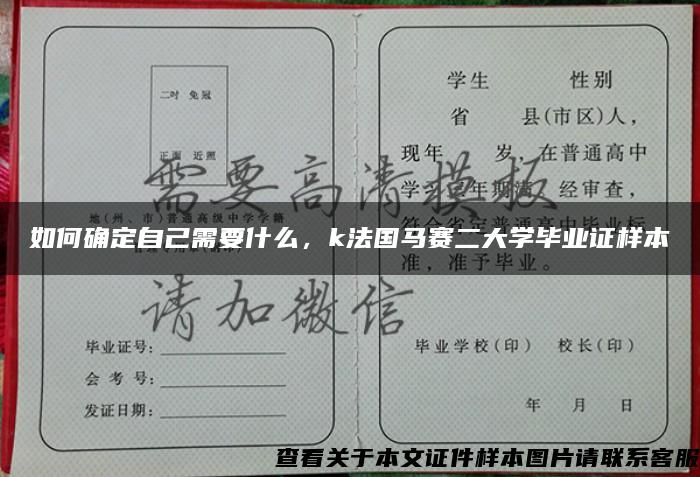 二吋 免冠
正面 近照
地(州、市)普通高级中学学籍
毕业证号:
会考号:
发证日期:
学生 性别
省 县(市区)人,
现年 岁,在普通高中
学习 年期满,经审查,
准,准予毕业。
毕业学校(印) 校长(印)
年 月 日
需要高清模板
请加微信
如何确定自己需要什么,k法国马赛二大学毕业证样本
查看关于本文证件样本图片请联系客服